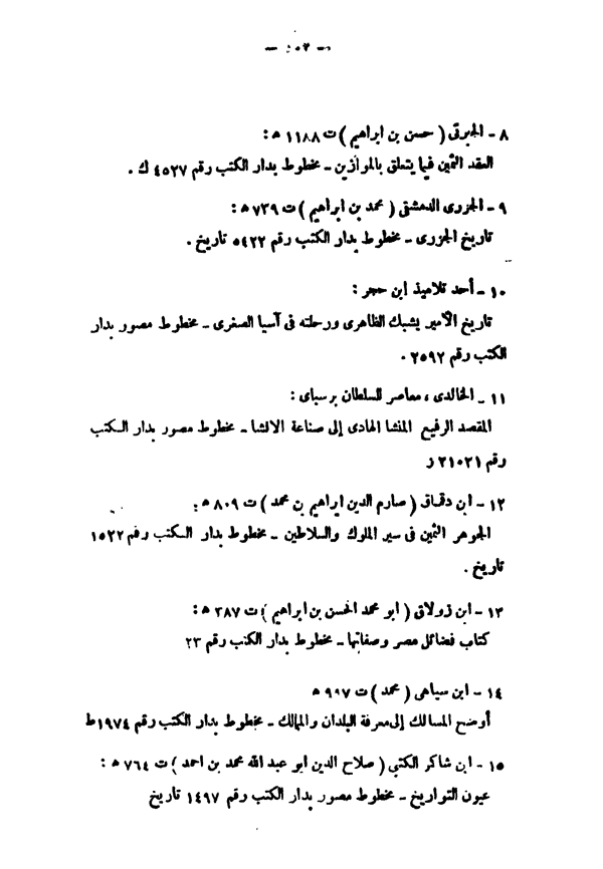 ٨ - الجبرتى ( حسن بن ابراهيم ) ت ١١٨٨ ه :
العقد الثمين فيما يتعلق بالموازين - مخطوط بدار الكتب رقم ٤٥٢٧ ك .
٩ - الجزرى الدمشقى ( محمد بن ابراهيم ) ت ٧٣٩ ه :
تاريخ الجزرى - مخطوط بدار الكتب رقم ٥٤٢٢ تاريخ .
١٠ - أحد تلاميذ ابن حجر :
تاريخ الأمير يشبك الظاهرى ورحلته فى آسيا الصغرى - مخطوط مصور بدار
الكتب رقم ٢٥٩٢ .
١١ - الخالدى ، معاصر للسلطان برسباى :
المقصد الرفيع المنشا الهادى إلى صناعة الانشا - مخطوط مصور بدار الكتب
رقم ٢١٥٢١ ز
١٢ - ابن دقماق ( صارم الدين ابراهيم بن محمد ) ت ٨٠٩ ه :
الجوهر الثمين فى سير الملوك والسلاطين - مخطوط بدار الكتب رقم ١٥٢٢
تاريخ .
١٣ - ابن زولاق ( ابو محمد الحسن بن ابراهيم ) ت ٣٨٧ ه :
كتاب فضائل مصر وصفاتها - مخطوط بدار الكتب رقم ٢٣
١٤ - ابن سياهى ( محمد ) ت ٩٠٧ ه
أوضح المسالك إلى معرفة البلدان والممالك - مخطوط بدار الكتب رقم ١٩٧٤ط
١٥ - ابن شاكر الكتبي ( صلاح الدين ابو عبد الله محمد بن احمد ) ت ٧٦٤ ه :
عيون التواريخ - مخطوط مصور بدار الكتب رقم ١٤٩٧ تاريخ